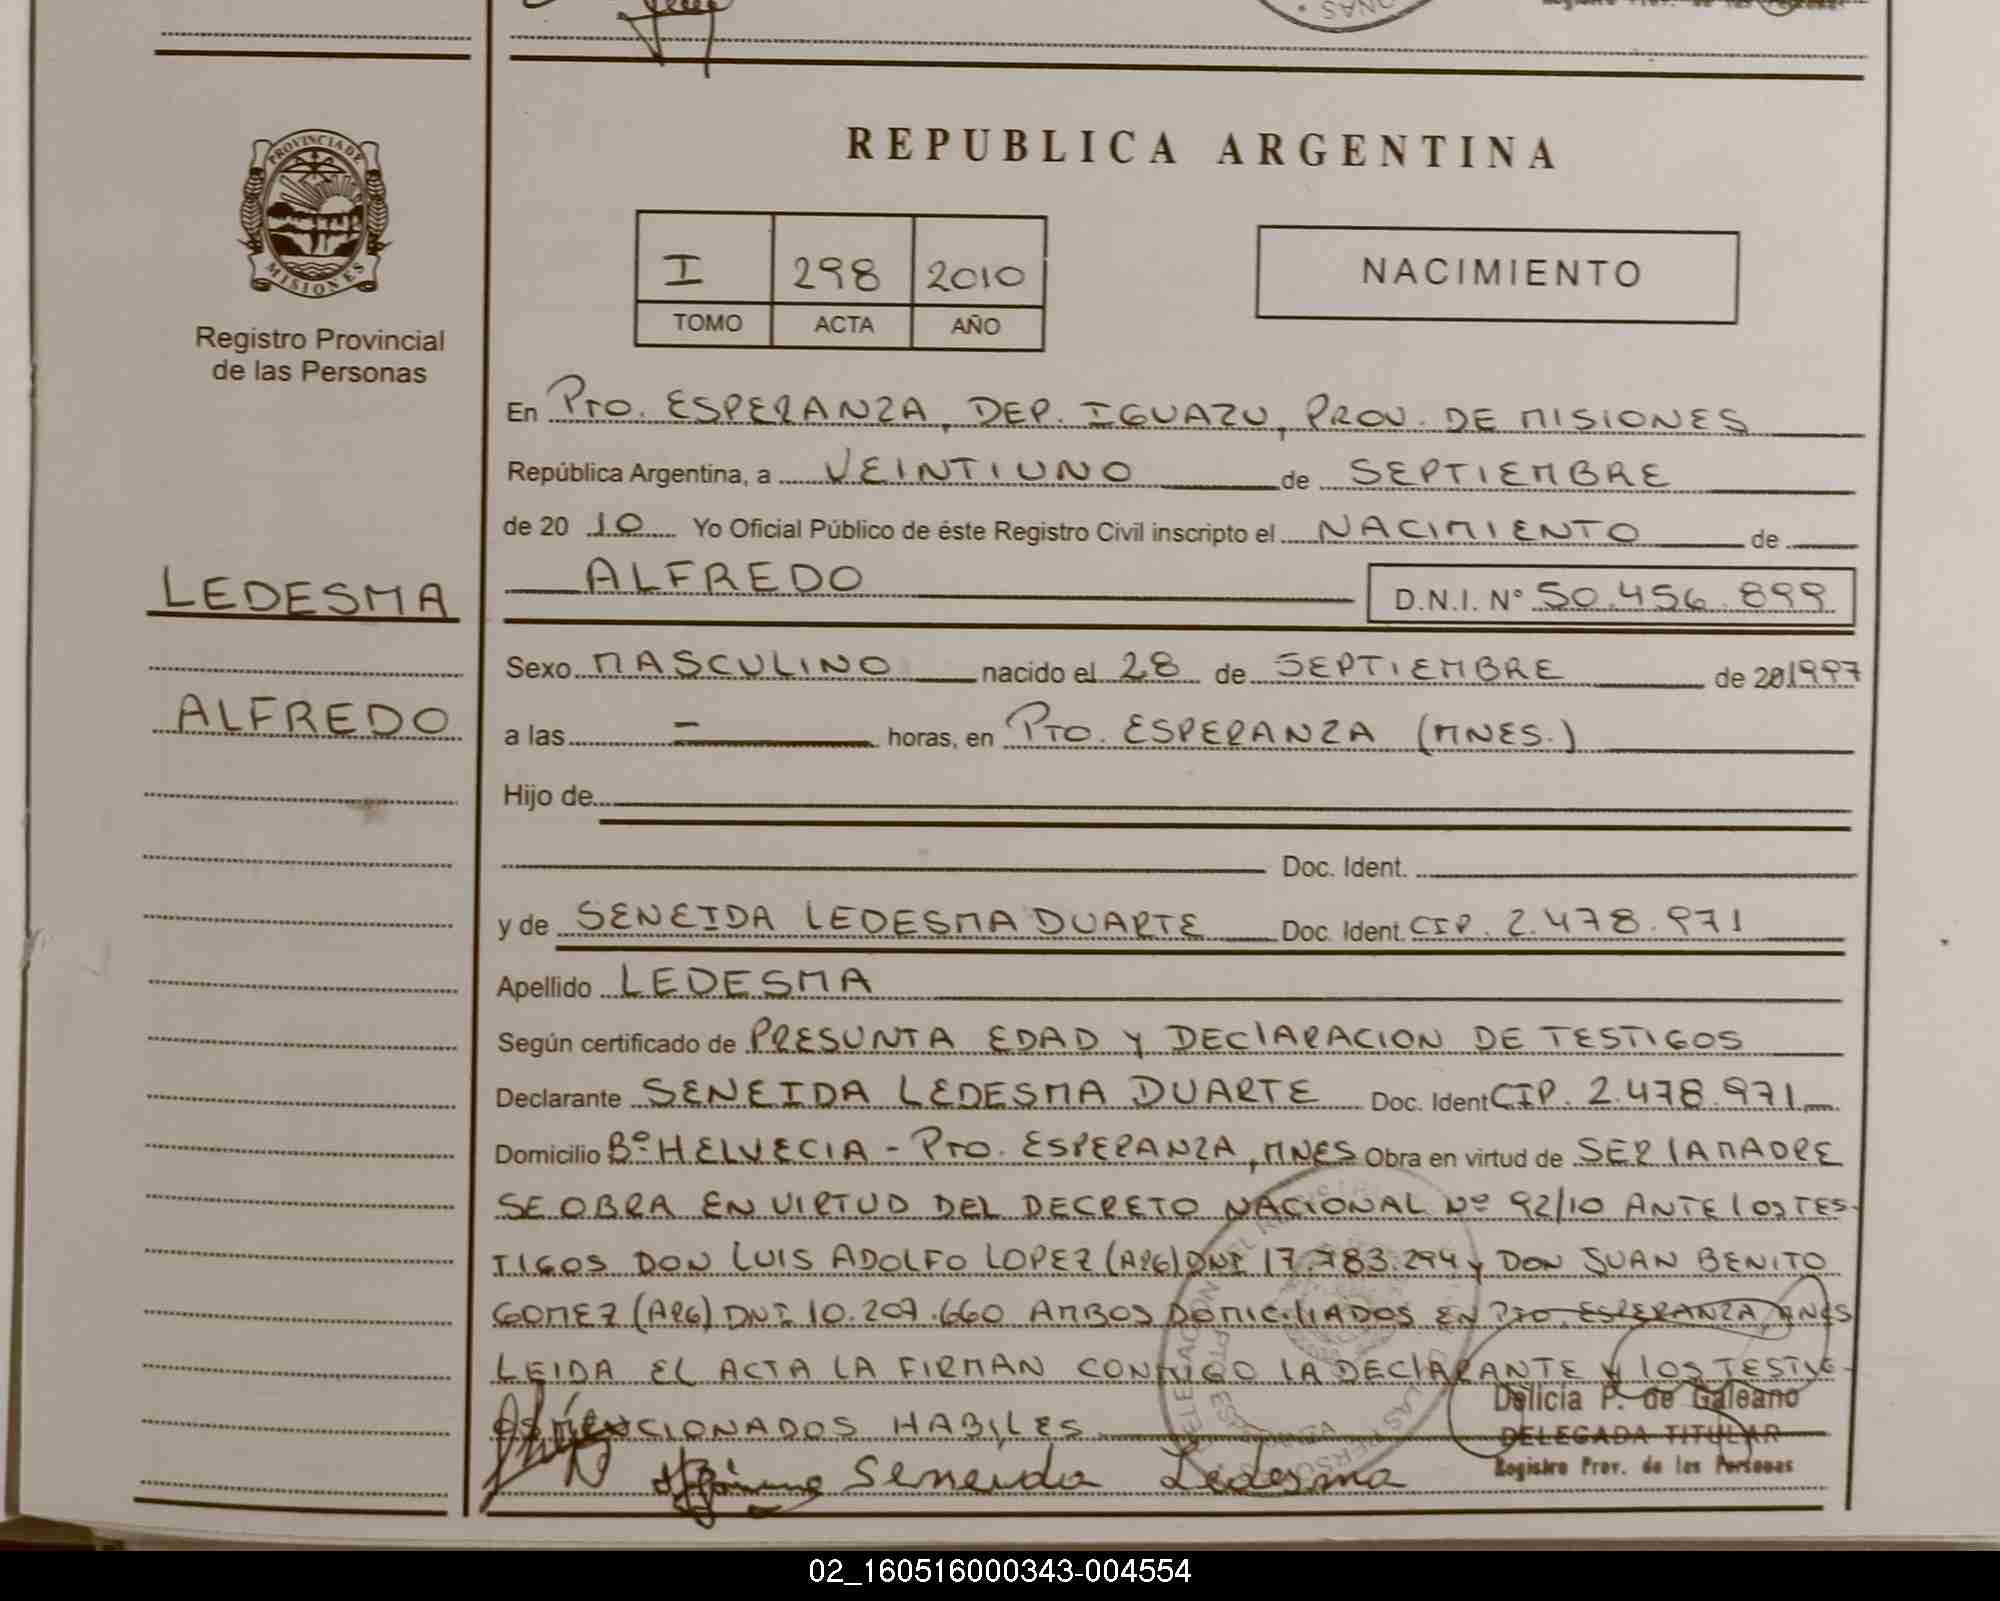 REPUBLICA ARGENTINA
PROVINCIA DE
MISIONES
Registro Provincial
de las Personas
I 298 2010
TOMO ACTA AÑO
NACIMIENTO
En Pto. ESPERANZA, DEP. IGUAZU, PROV. DE MISIONES
República Argentina, a VEINTIUNO de SEPTIEMBRE
de 20 10 Yo Oficial Público de éste Registro Civil inscripto el NACIMIENTO de
LEDESMA
ALFREDO D.N.I. Nº 50.456.899
Sexo MASCULINO nacido el 28 de SEPTIEMBRE de 20 1997
ALFREDO
a las - horas, en Pto. ESPERANZA (MNES.)
Hijo de
Doc. Ident.
y de SENEIDA LEDESMA DUARTE Doc. Ident. CIP. 2.478.971
Apellido LEDESMA
Según certificado de PRESUNTA EDAD Y DEClARACION DE TESTIGOS
Declarante SENEIDA LEDESMA DUARTE Doc. Ident CIP. 2.478.971
Domicilio Bº HELVECIA - Pto. ESPERANZA, MNES Obra en virtud de SER lA MADRE
SE OBRA EN VIRTUD DEL DECRETO NACIONAL Nº 92/10 ANTE lOS TES-
TIGOS DON LUIS ADOLFO LOPEZ (ARG) DNI 17.783.294 y DON JUAN BENITO
GOMEZ (ARG) DNI 10.207.660 AMBOS DOMICILIADOS EN Pto. ESPERANZA, MNES
LEIDA EL ACTA LA FIRMAN CONMIGO lA DEClARANTE Y lOS TESTIG-
OS MENCIONADOS HABILES
Delicia P. de Galeano
DELEGADA TITULAR
Registro Prov. de las Personas
Seneida Ledesma
02_160516000343-004554